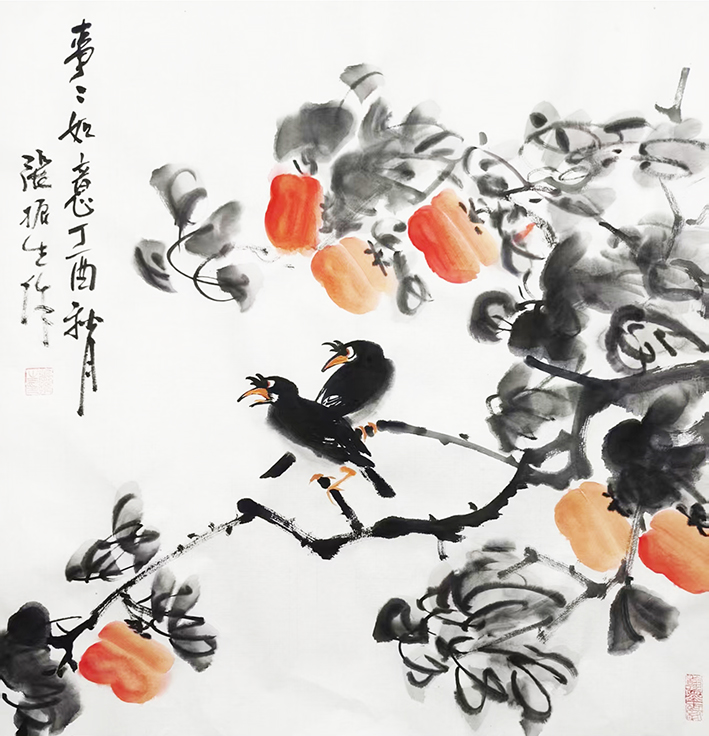 事二如意丁酉秋月
張振生作